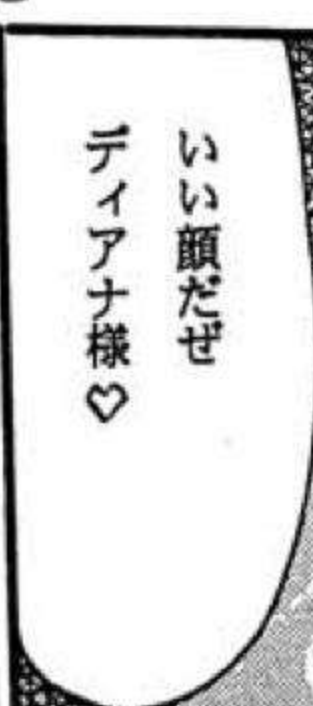 いい顔だぜ
ディアナ様♡